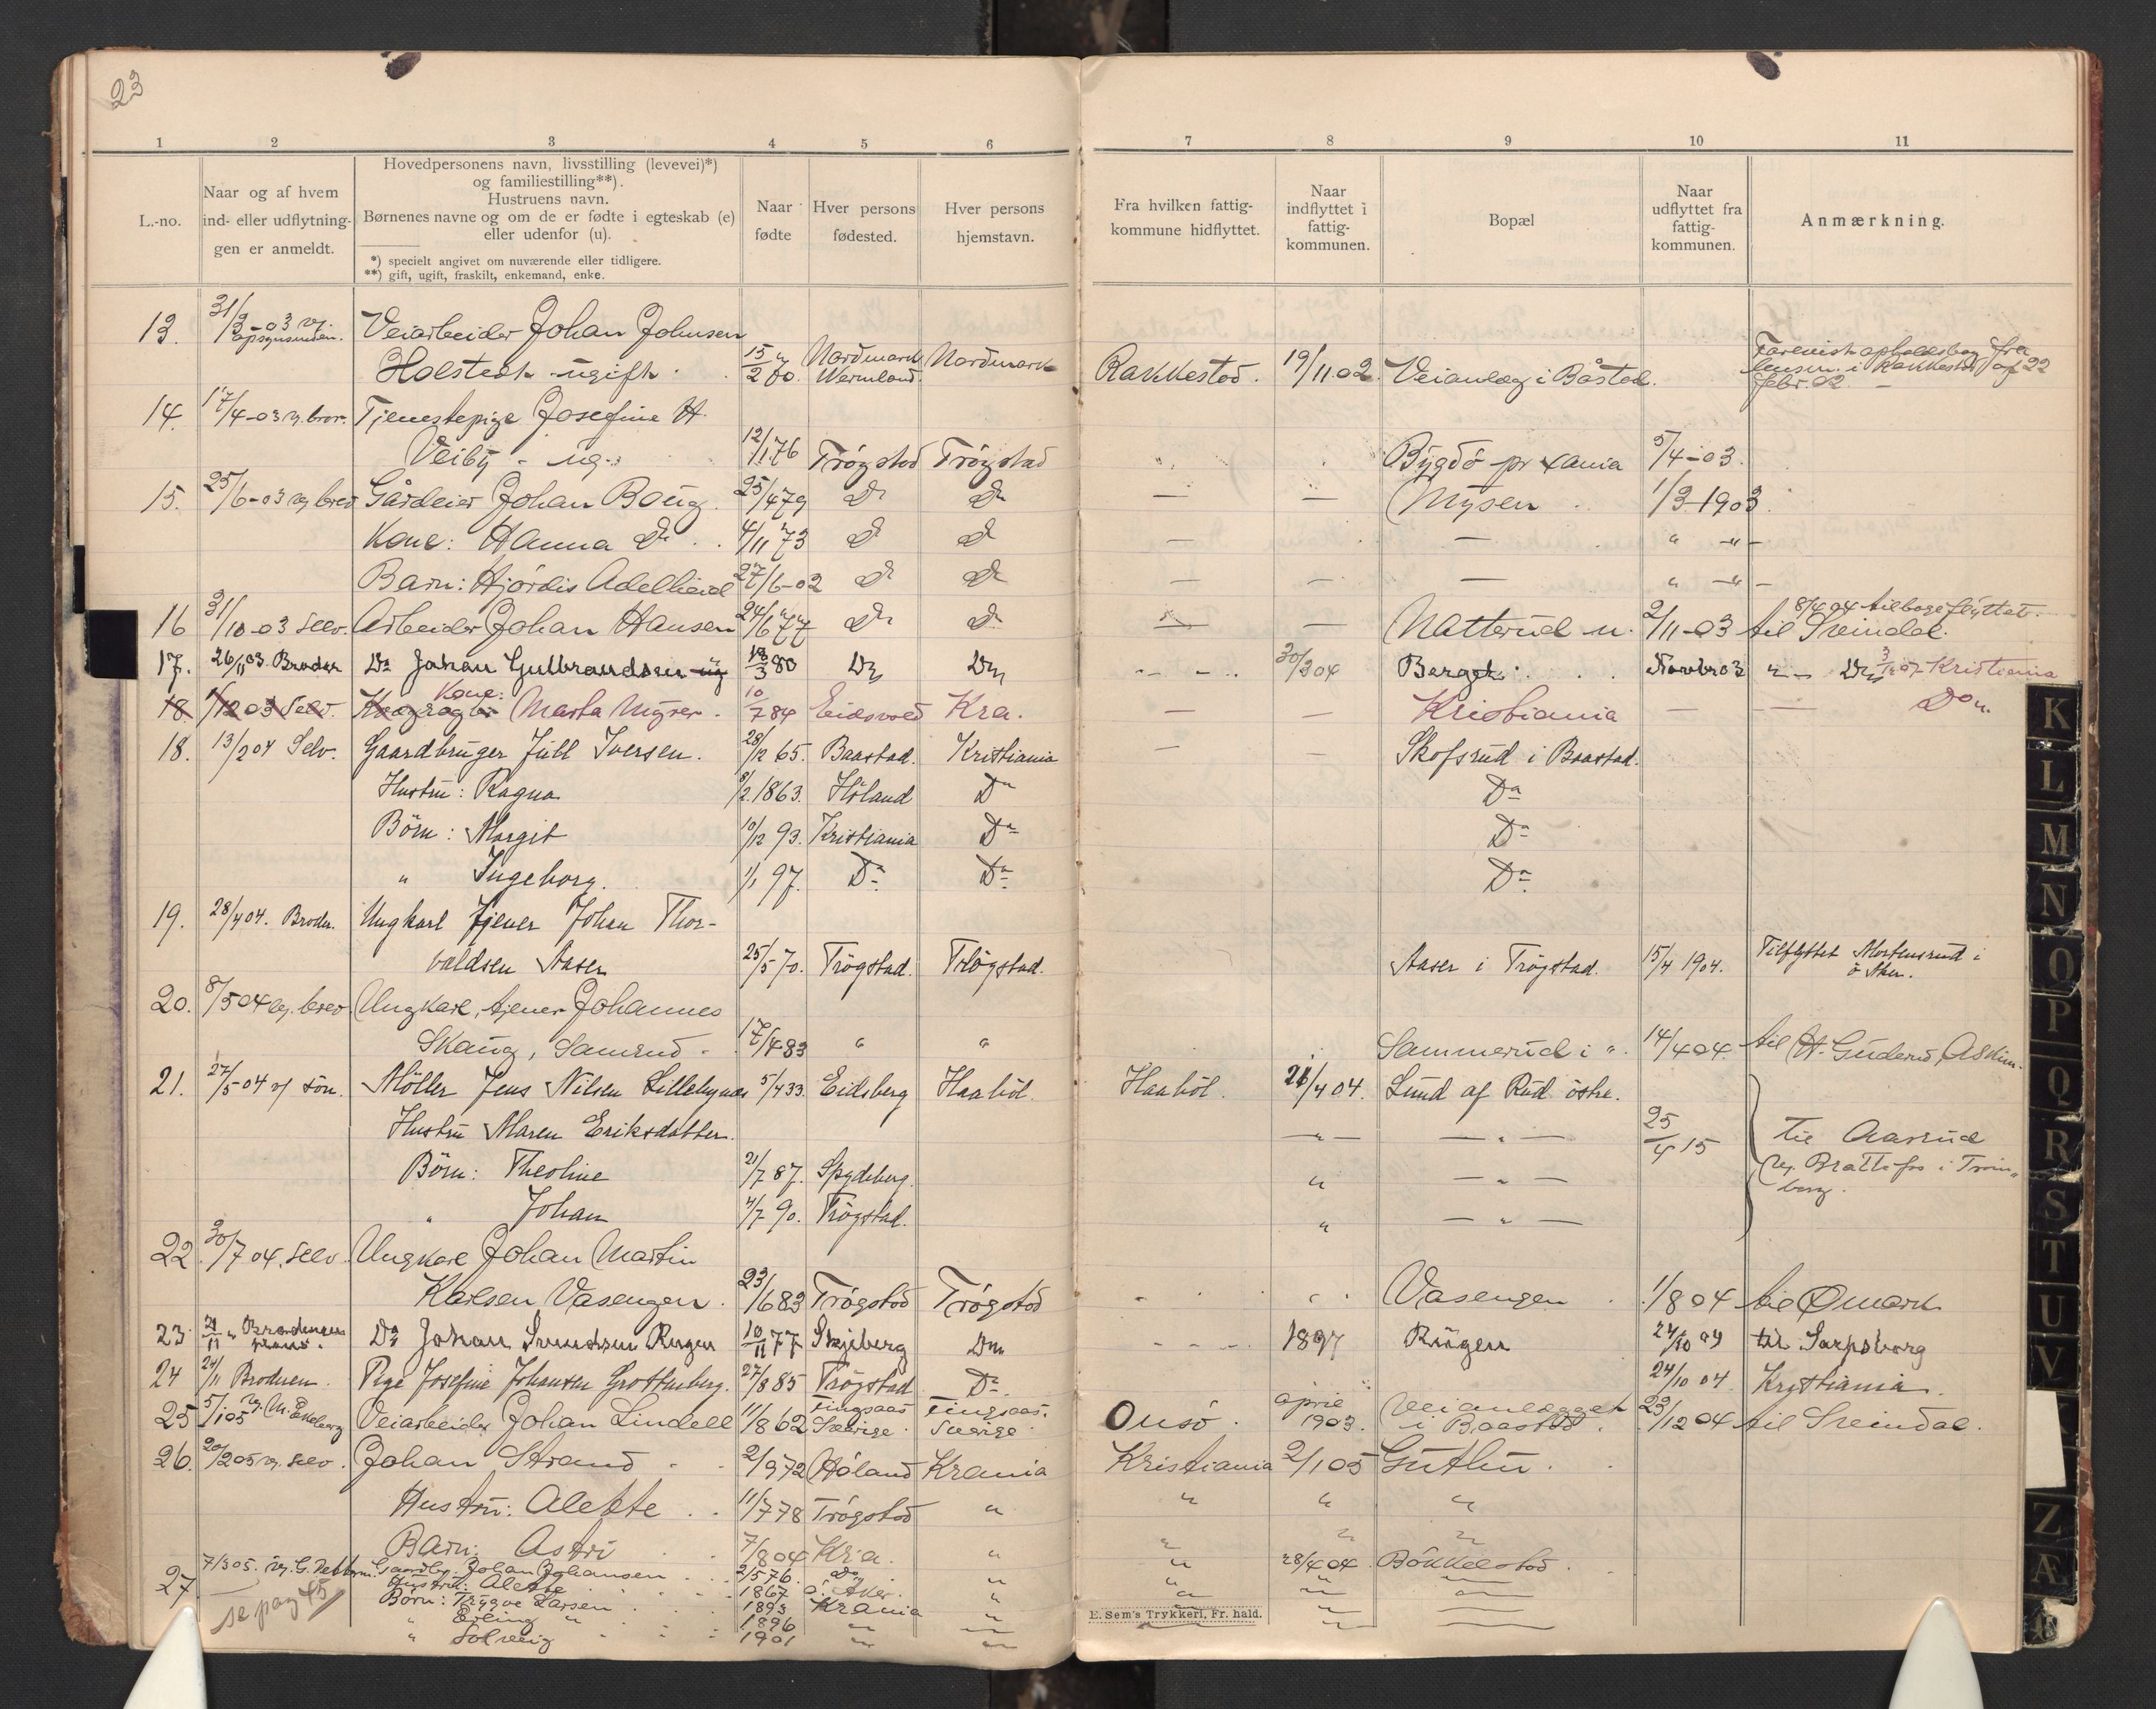 23
1 2 3 4 5 6 7 8 9 10 11
L.-no.
Naar og af hvem
ind- eller udflytnin-
gen er anmeldt.
Hovedpersonens navn, livsstilling (levevei)*)
og familiestilling**).
Hustruens navn.
Børnenes navne og om de er fødte i egteskab (e)
eller udenfor (u).
*) specielt angivet om nuværende eller tidligere.
**) gift, ugift, fraskilt, enkemand, enke.
Naar
fødte
Hver persons
fødested.
Hver persons
hjemstavn.
Fra hvilken fattig-
kommune hidflyttet.
Naar
indflyttet i
fattig-
kommunen.
Bopæl
Naar
udflyttet fra
fattig-
kommunen.
Anmærkning.
13. Veiarbeider Johan Johnsen
Holstedt ugift. 15/2 60. Nordmark Wermland. Nordmark Rakkestad. 19/11 02. Veianlæg i Båstad.
14. 17/4-03 Tjenestepige Josefine H.
Veiby - ug. 12/1 76 Trögstad Trögstad Bygdö pr xania 5/4-03.
15. 25/6-03 brev Gårdeier Johan Boug. 25/4 79 Do Do — — Mysen 1/3-1903.
Kone: Hanna Do 4/11 73 Do Do — — " -"-
Barn: Hjördis Adelheid 27/6-02 Do Do — — — " -"-
16 31/10-03 selv. Arbeider Johan Hansen 24/6 77 Do Do — — Natterud 2/11-03 til Sreindal. 8/4 04 tilbageflyttet.
17. 26/11 03. Broder Do Johan Gulbrandsen ug 18/3 80 Do Do 30/3 04 Berget Novbr 03 Kristiania
18 1/12 03 Selv. Kone: Marta Myrer. 10/7 84 Eidsvold Kra. — — Kristiania — — Do
18. 13/2 04 Selv. Gaardbruger Juhl Iversen. 28/12 65. Baastad. Kristiania — — Skofsrud i Baastad.
Hustru: Ragna 9/2 1863. Höland Do Do
Börn: Margit 10/12 93. Kristiania Do Do
" Ingeborg. 1/1 97. Do Do Do
19. 28/4 04. Broder. Ungkarl tjener Johan Thor-
valdsen Aaser 25/5 70. Trögstad. Trögstad. Aaser i Trögstad. 15/4 1904. Tilflyttet Mortensrud i
ö Aker.
20. 8/5 04 brev Ungkarl, tjener Johannes
Skaug, Samerud. 17/4 83 " " Sammerud i ". 14/4 04. til H. Guderud, Askim.
21. 27/5 04 v/ sön. Möller Jens Nilsen Lillebynes 5/4 33. Eidsberg Haaböl. Haaböl. 21/4 04. Lund af Rud östre.
Hustru Maren Eriksdatter. —"— —"— 25/4 15 til Aasrud
Börn: Theoline 21/7 87. Spydeberg. " —"— Brattefos i Tröm-
borg.
" Johan 4/7 90. Trögstad. " —"—
22. 30/7 04. selv. Ungkarl Johan Martin
Karlsen Vasengen. 23/6 83 Trögstad Trögstad Vasengen 1/8 04 til Ømark
23 Do Johan Svendsen Rugen 10/11 77 Skjeberg Do 1897 Rugen 24/10 04 til Sarpsborg
24 24/11 Broderen Pige Josefine Johansen Grottenberg. 27/8 85 Trögstad Do 24/10 04 Kristiania.
25 5/1 05 M. Eneberg Veiarbeider Johan Lindell 11/8 62 Tingsaas Sverige Tingsaas. Sverige Onsö. april 1903. Veianlægget i Baastad. 23/12 04 til Sreindal.
26. 20/2 05 selv. Johan Strand 2/9 72 Höland Krania Kristiania 2/1 05 Guthu.
Hustru: Alette 11/7 78 Trögstad " " " "
Barn: Astri 7/8 04 Kra. " " " "
27 7/3 05. Gaardbr. Johan Johansen 2/5 76. Do " " 28/4 04 Bökkelstad.
Hustru: Alette 1867 ö. Aker. " " "
Börn: Trygve Larsen 1893 Krania " " "
se pag 45
" Erling " 1896 " " " "
" Solveig 1901 " " " "
E. Sem's Trykkeri, Fr. hald.
K
L
M
N
O
P
Q
R
S
T
U
V
Z
Æ